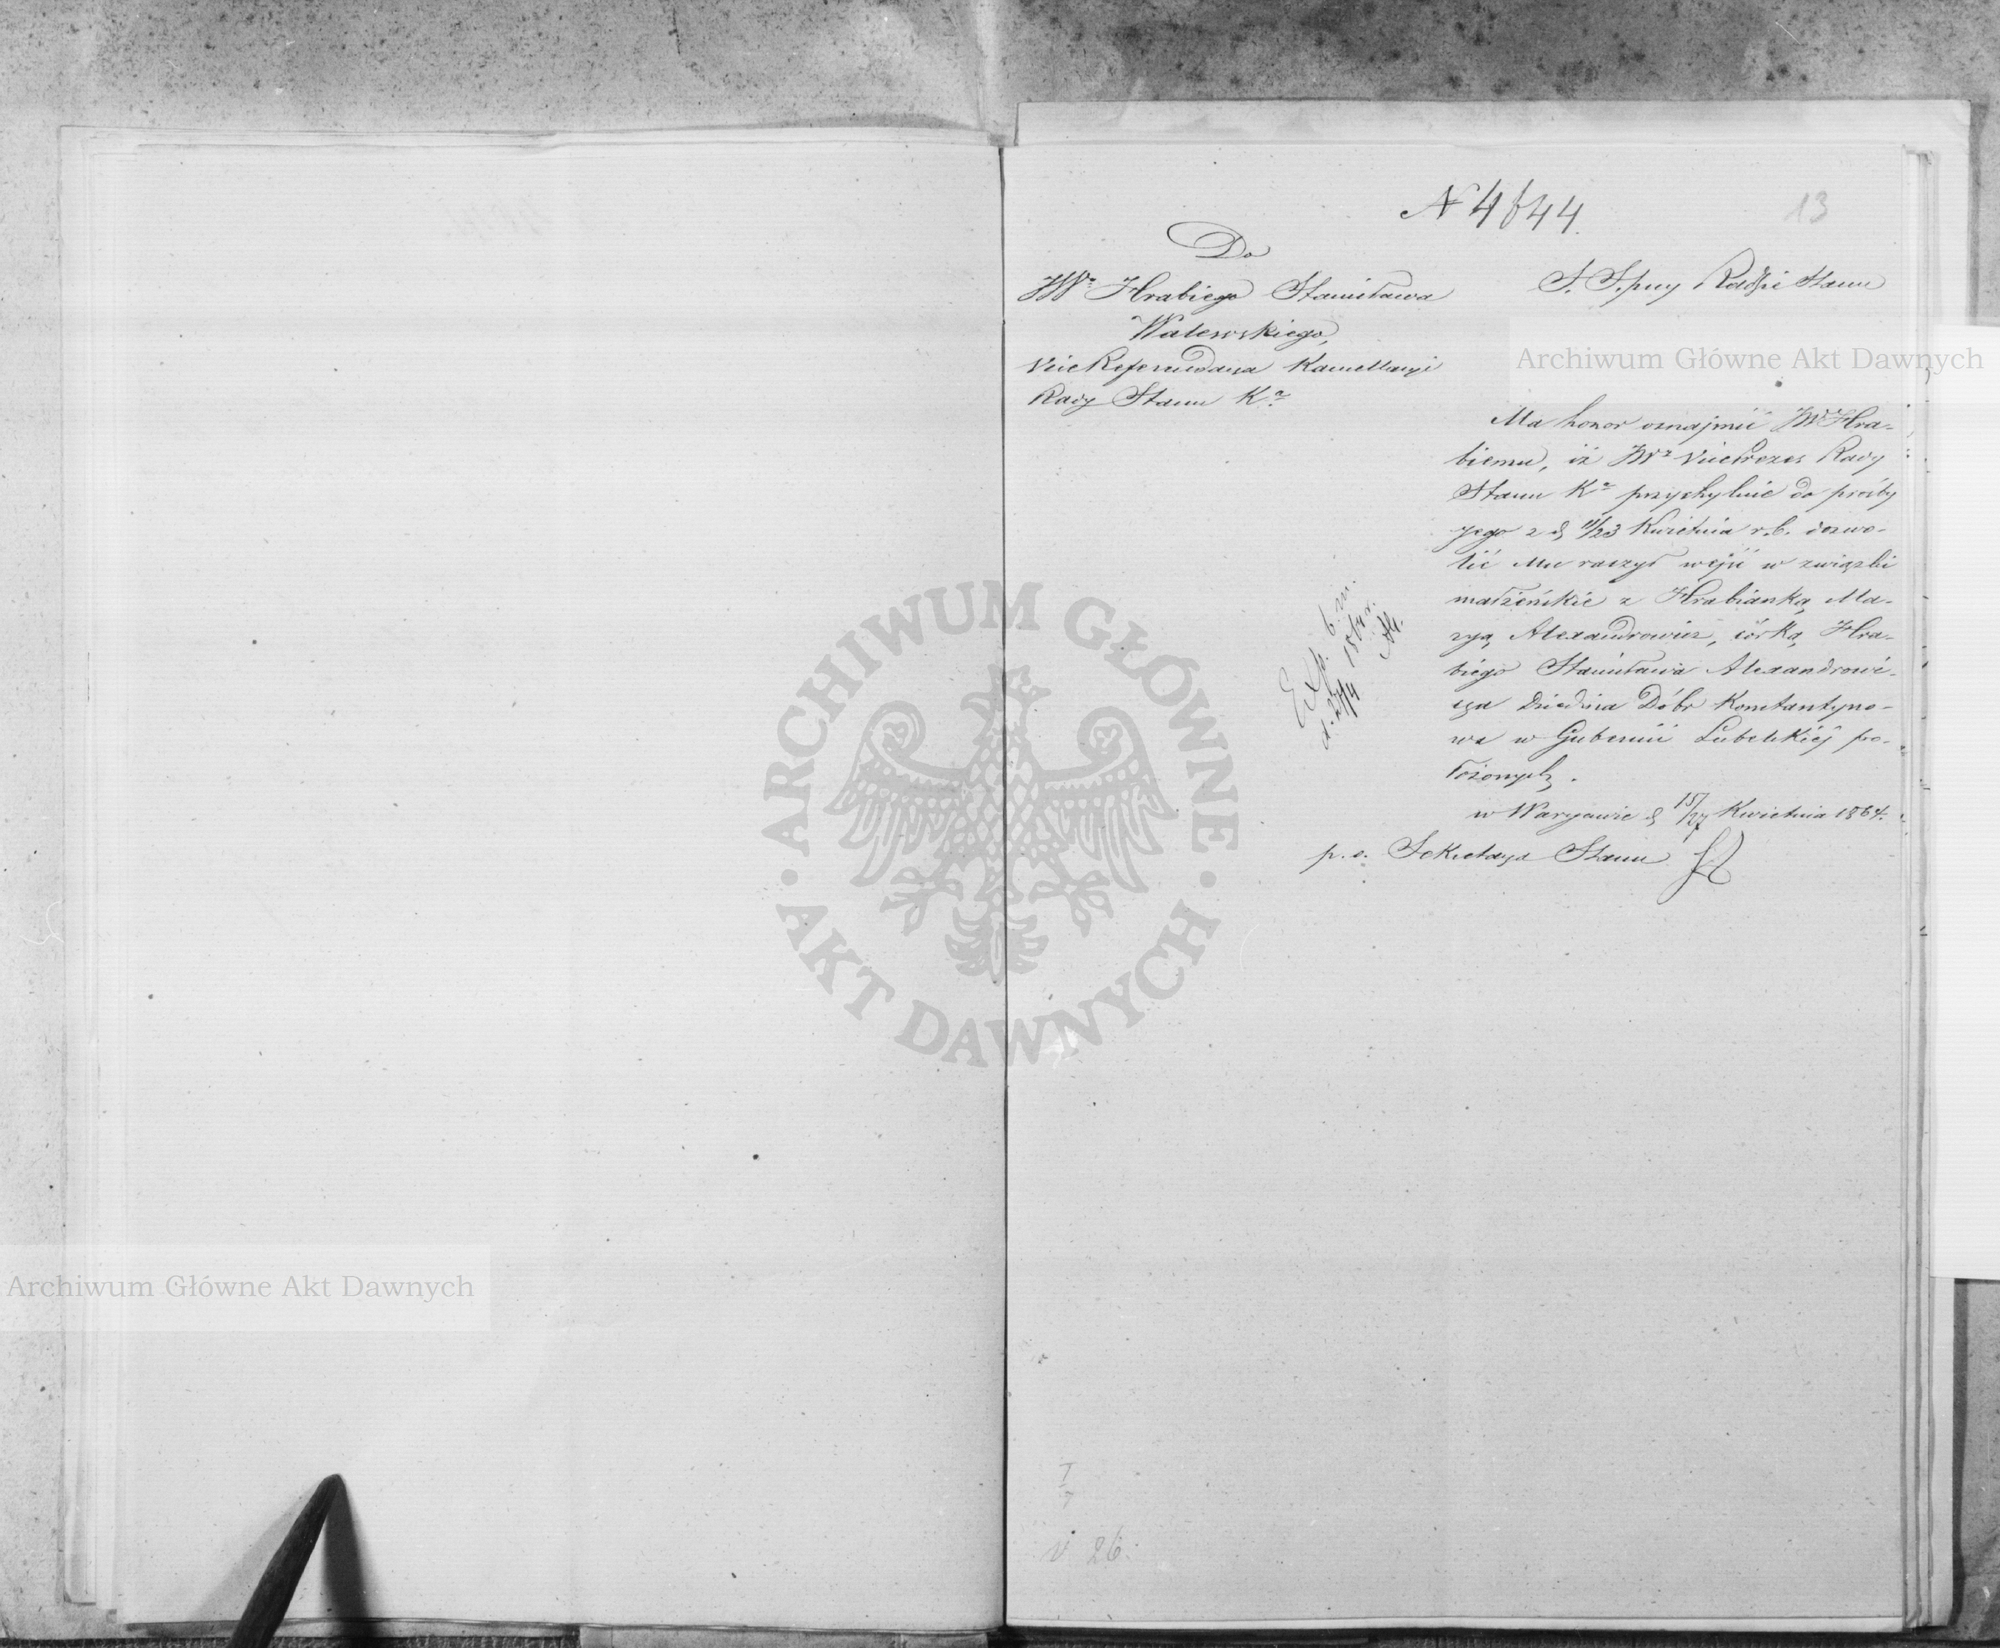 N 4844.
13
Do
JWo Hrabiego Stanisława
Walewskiego,
Vice Referendarza Kancellaryi
Rady Stanu Ka
S. S. przy Radzie Stanu
Ma honor oznajmić JW Hra-
biemu, iż JWy Vice Prezes Rady
Stanu Ka przychylnie do prośby
jego z d 11/23 Kwietnia r.b. dozwo-
lić Mu raczył wejść w związki
małżeńskie z Hrabianką Ma-
ryą Alexandrowicz, córką Hra-
biego Stanisława Alexandrowi-
cza Dziedzica Dóbr Konstantyno-
wa w Gubernii Lubelskiéj po-
łożonych.
w Warszawie d 15/27 Kwietnia 1864.
p. o. Sekretarza Stanu
Exp. b. m.
d. 27/4 1864 r.
V 26.
Archiwum Główne Akt Dawnych
Archiwum Główne Akt Dawnych
ARCHIWUM GŁÓWNE
AKT DAWNYCH